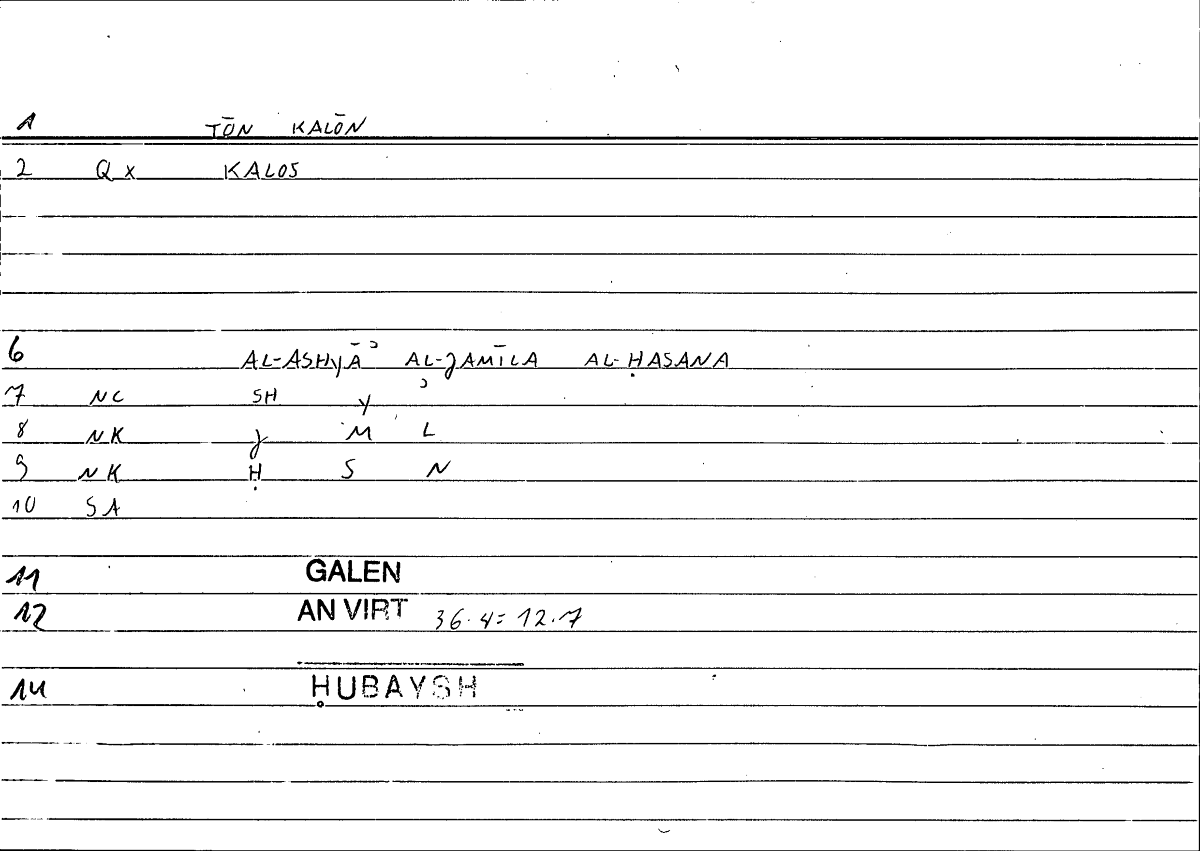 1 TŌN KALŌN
2 Qx KALOS
6 AL-ASHYĀʾ AL-JAMĪLA AL-ḤASANA
7 NC SH Y ʾ
8 NK J M L
9 NK Ḥ S N
10 SA
11 GALEN
12 AN VIRT 36.4=12.7
14 ḤUBAYSH